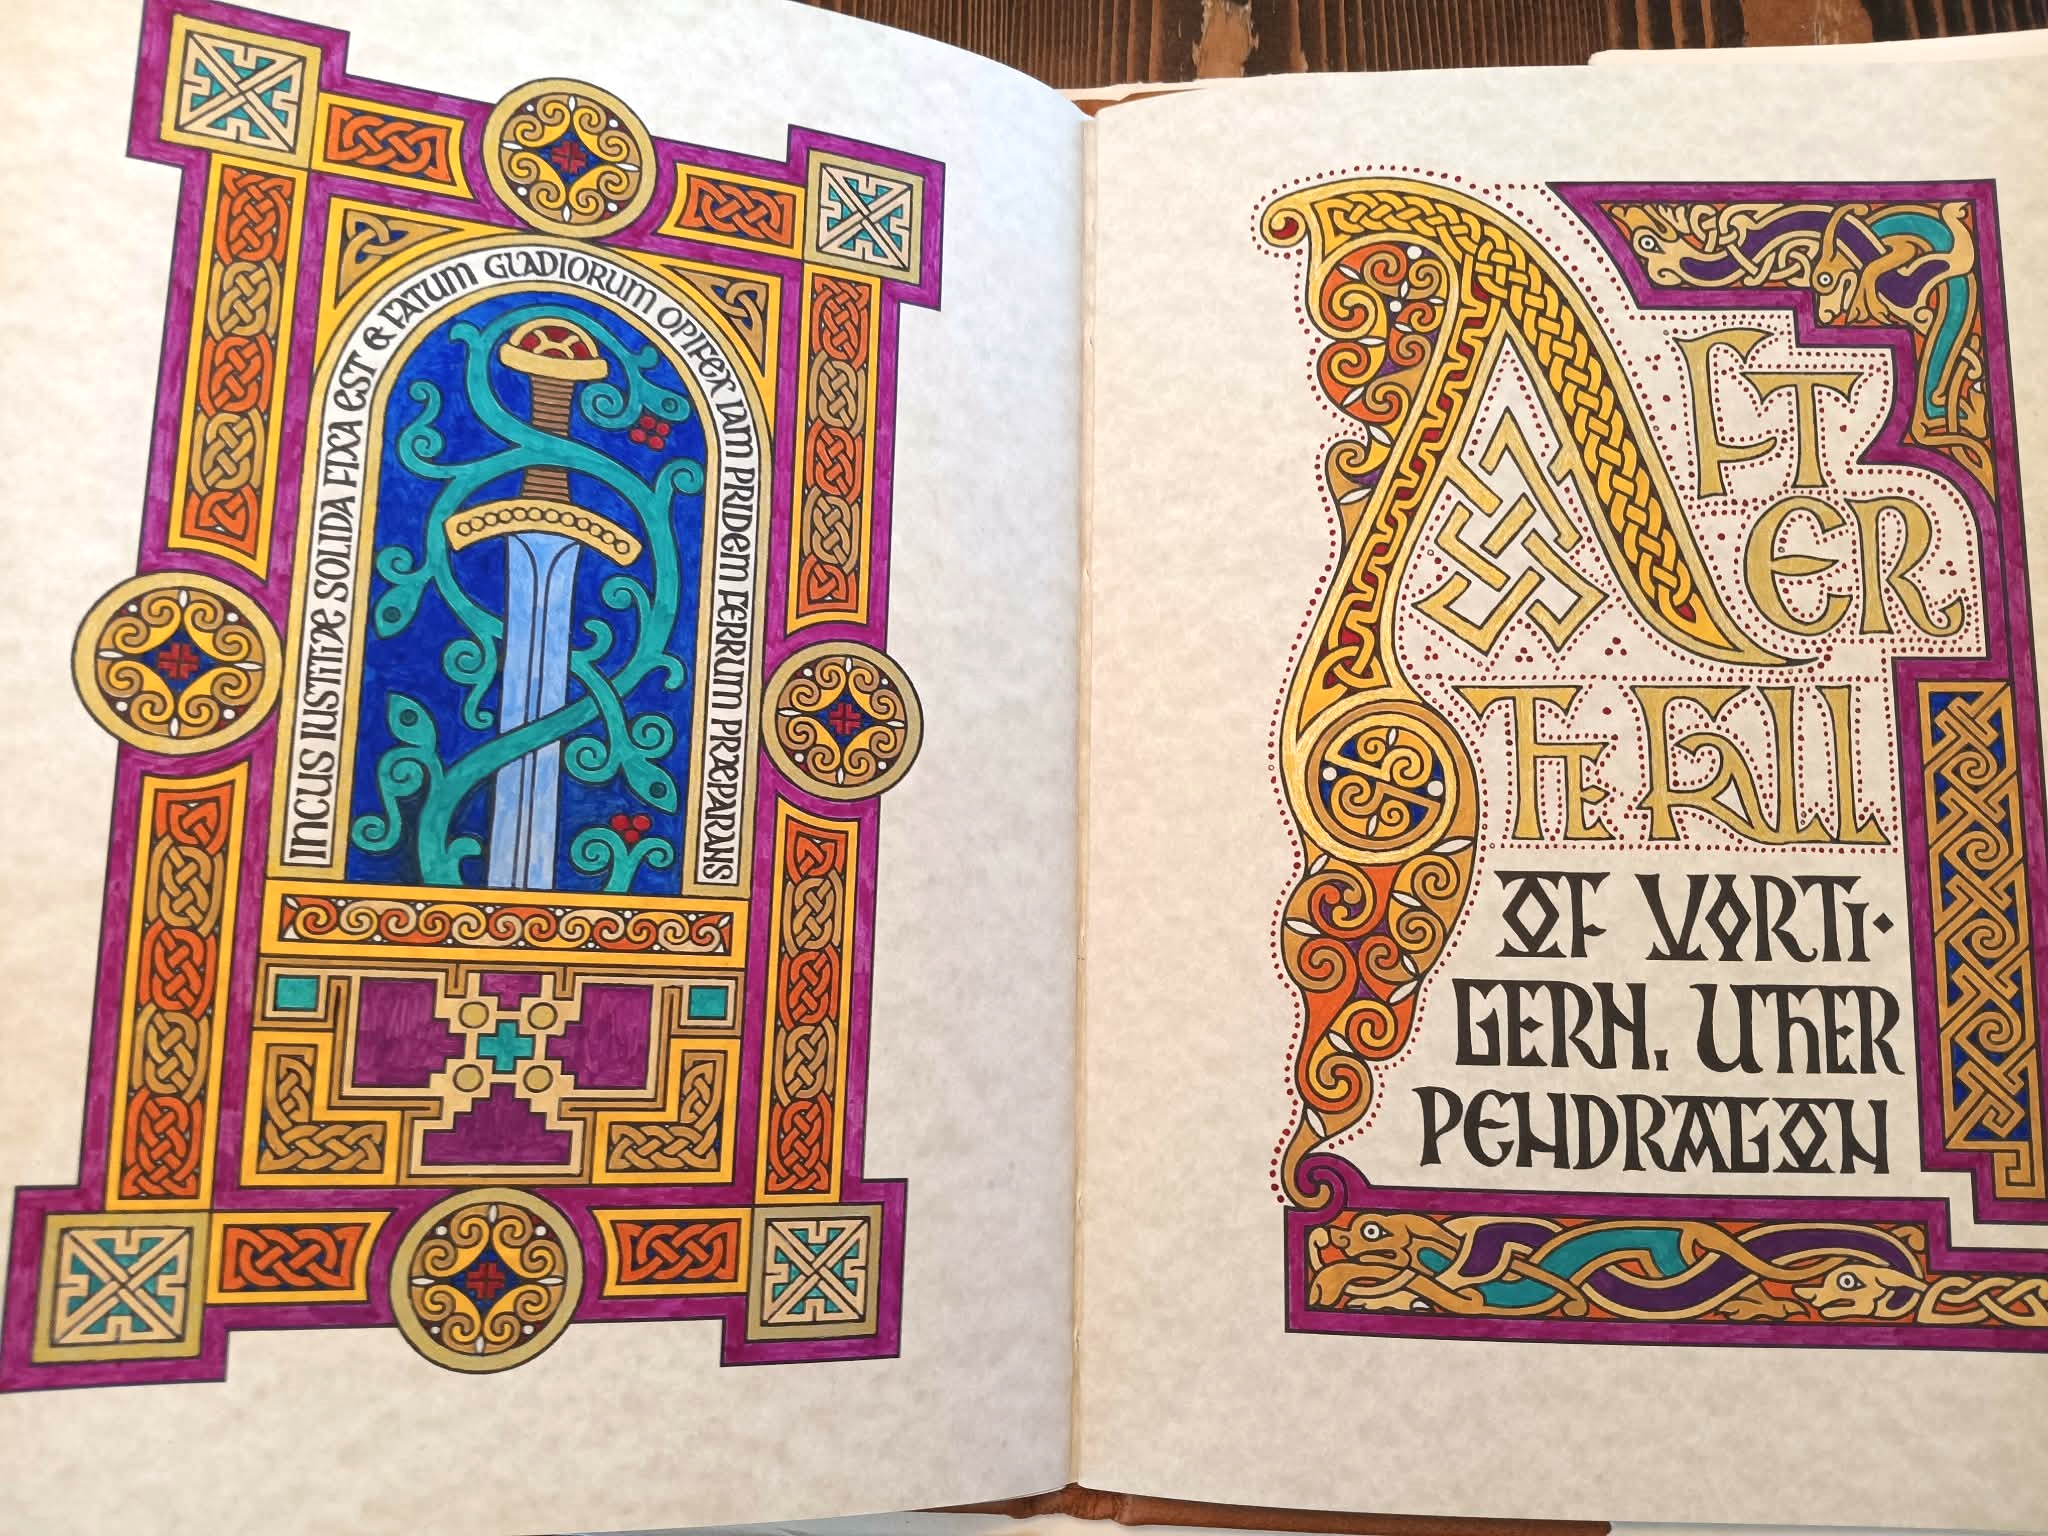 INCUS IUSTITIÆ SOLIDA FIXA EST & FATUM GLADIORUM OPIFEX IAM PRIDEM FERRUM PRÆPARANS
AFT
ER
THE FALL
OF VORTI·
GERN, UTHER
PENDRAGON